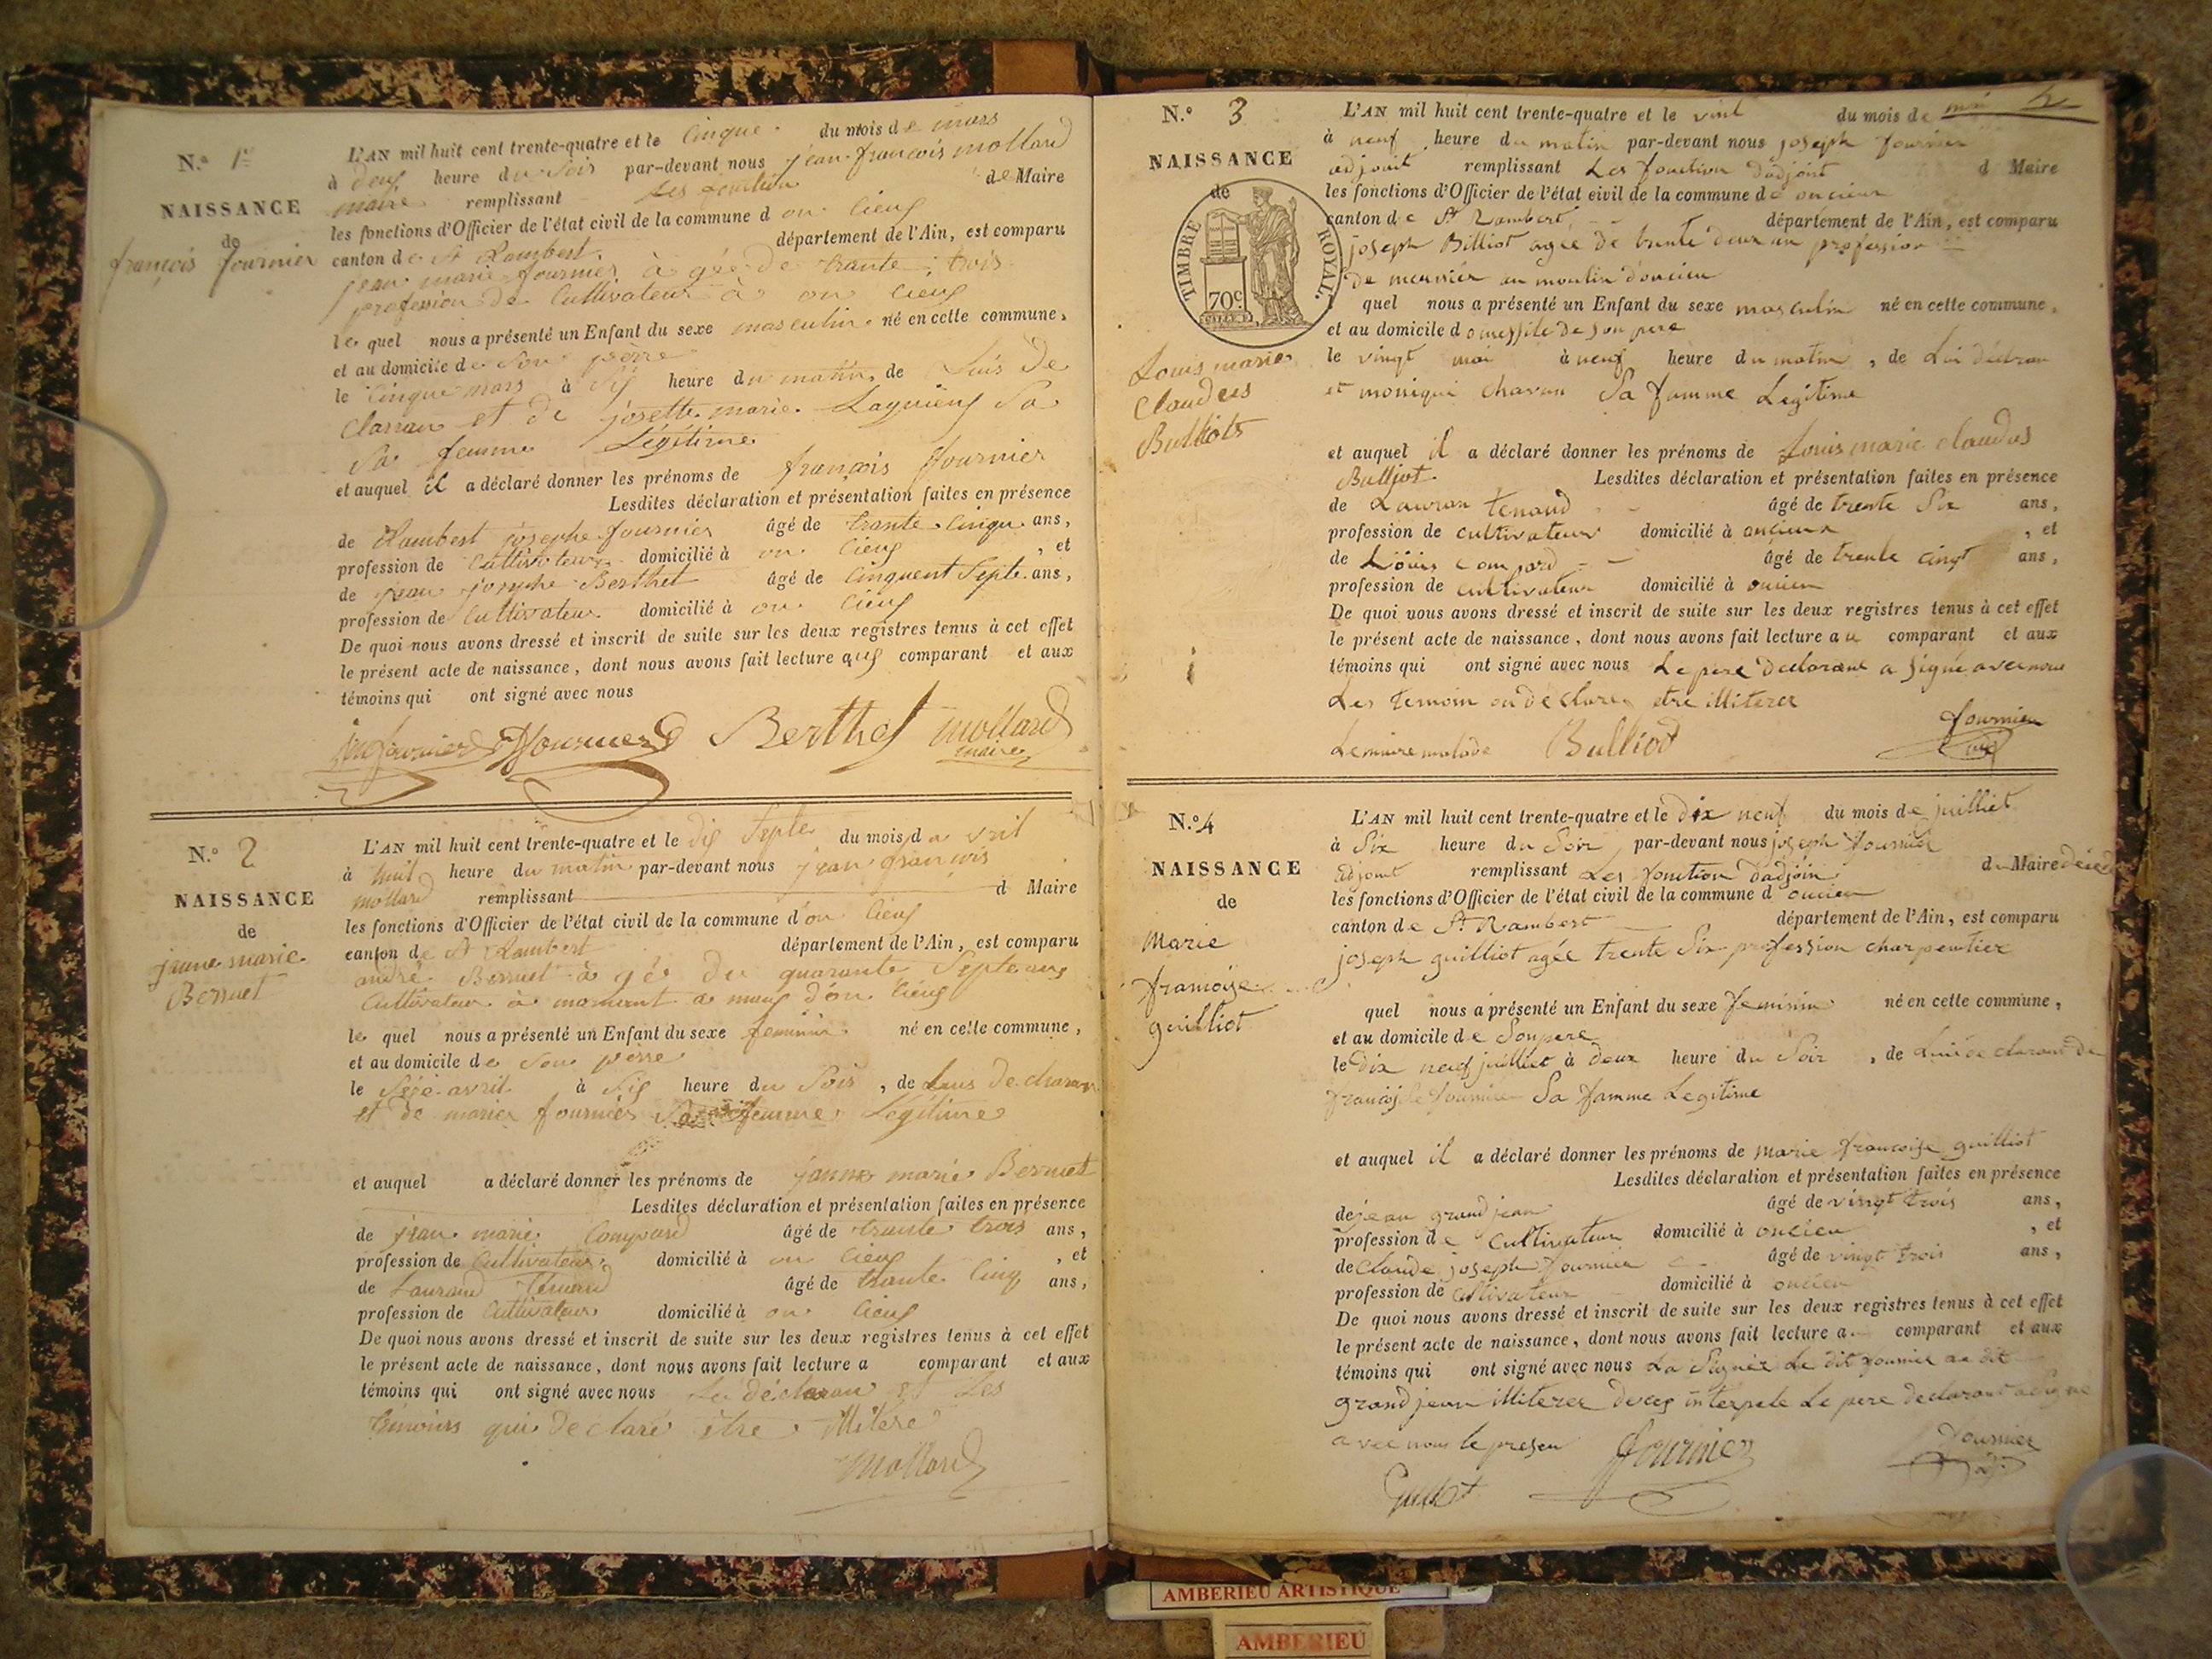 N.o 1er
NAISSANCE
de
françois fournier
L'AN mil huit cent trente-quatre et le cinque du mois de mars
à deuf heure du soir par-devant nous jean françois mollard
maire remplissant les fonction de Maire
les fonctions d'Officier de l'état civil de la commune d on cieuf
canton de St Rambert département de l'Ain, est comparu
jean marie fournier à gée de trante trois
profession de Cultivateur à on cieuf
le quel nous a présenté un Enfant du sexe masculin né en cette commune,
et au domicile de son père
le cinque mars à sif heure du matin, de Luis de
claran et de josette marie Lagnieuf Sa
Sa femme Légitime
et auquel il a déclaré donner les prénoms de françois fournier
Lesdites déclaration et présentation faites en présence
de Rambert josephe fournier âgé de trante cinqu ans,
profession de Cultivateur domicilié à on cieuf , et
de jean josephe Berthet âgé de cinquent Septe ans,
profession de Cultivateur domicilié à on cieuf
De quoi nous avons dressé et inscrit de suite sur les deux registres tenus à cet effet
le présent acte de naissance, dont nous avons fait lecture auf comparant et aux
témoins qui ont signé avec nous
jm fournier fournier Berthet mollard
maire
N.o 2
NAISSANCE
de
jeanne marie
Bernuet
L'AN mil huit cent trente-quatre et le dif Septe du mois d a vril
à huit heure du matin par-devant nous jean françois
mollard remplissant d Maire
les fonctions d'Officier de l'état civil de la commune d'on cieuf
canton de St Rambert département de l'Ain, est comparu
andré Bernuet à gée du quarante Septe ans
Cultivateur à d'on cieuf
le quel nous a présenté un Enfant du sexe feminin né en cette commune,
et au domicile de son père
le avril à sif heure du Soir , de Luis de claran
et de marie fournier Sa femme Légitime
et auquel a déclaré donner les prénoms de janne marie Bernuet
Lesdites déclaration et présentation faites en présence
de jean marie Compard âgé de trante trois ans,
profession de Cultivateur domicilié à on cieuf , et
de Laurand Tenand âgé de trante cinq ans,
profession de Cultivateur domicilié à on cieuf
De quoi nous avons dressé et inscrit de suite sur les deux registres tenus à cet effet
le présent acte de naissance, dont nous avons fait lecture a comparant et aux
témoins qui ont signé avec nous Le déclaran et Les
témoins qui declaré etre illitéré
mollard
N.o 3
NAISSANCE
de
TIMBRE ROYAL.
70c
Louis marie
Claudus
Bulliot
L'AN mil huit cent trente-quatre et le vint du mois de mai
à neuf heure du matin par-devant nous joseph fournier
adjoint remplissant Les fonction dadjoint d Maire
les fonctions d'Officier de l'état civil de la commune de oncieux
canton de St Rambert département de l'Ain, est comparu
joseph Billiot agée de trente deux an profession
de meunier au moulin d'oncieu
quel nous a présenté un Enfant du sexe masculin né en cette commune,
et au domicile de son pere
le vingt mai à neuf heure du matin , de Lui déclran
et monique charvin Sa famme Legitime
et auquel il a déclaré donner les prénoms de Louis marie claudus
Bulliot Lesdites déclaration et présentation faites en présence
de Lauran tenand âgé de trente Six ans,
profession de cultivateur domicilié à oncieux , et
de Löuis compard âgé de trente cinq ans,
profession de cultivateur domicilié à oncieu
De quoi nous avons dressé et inscrit de suite sur les deux registres tenus à cet effet
le présent acte de naissance, dont nous avons fait lecture au comparant et aux
témoins qui ont signé avec nous Le pere declarant a signé avec nous
Les temoin on déclarez etre illiterer
Le maire malade Bulliod fournier
N.o 4
NAISSANCE
de
Marie
françoise
guilliot
L'AN mil huit cent trente-quatre et le dix neuf du mois de juilliet
à Six heure du Soir par-devant nous joseph fournier
adjoint remplissant Les fonction dadjoin du Maire décédé
les fonctions d'Officier de l'état civil de la commune d oncieu
canton de St Rambert département de l'Ain, est comparu
joseph guilliot agée trente Six profession charpentier
quel nous a présenté un Enfant du sexe feminin né en cette commune,
et au domicile de Son pere
le dix neuf juilliet à deux heure du Soir , de Lui de claran de
françoise fournier Sa famme Legitime
et auquel il a déclaré donner les prénoms de marie francoise guilliot
Lesdites déclaration et présentation faites en présence
de jean grand jean âgé de vingt trois ans,
profession de cultivateur domicilié à oncieu , et
de claude joseph fournier âgé de vingt trois ans,
profession de cultivateur domicilié à oncieu
De quoi nous avons dressé et inscrit de suite sur les deux registres tenus à cet effet
le présent acte de naissance, dont nous avons fait lecture a comparant et aux
témoins qui ont signé avec nous La Signée Le dit fournier
grand jean illiterer interpele Le pere declarant a signe
avec nous le presen fournier fournier
Guillot
AMBERIEU ARTISTIQUE
AMBERIEU